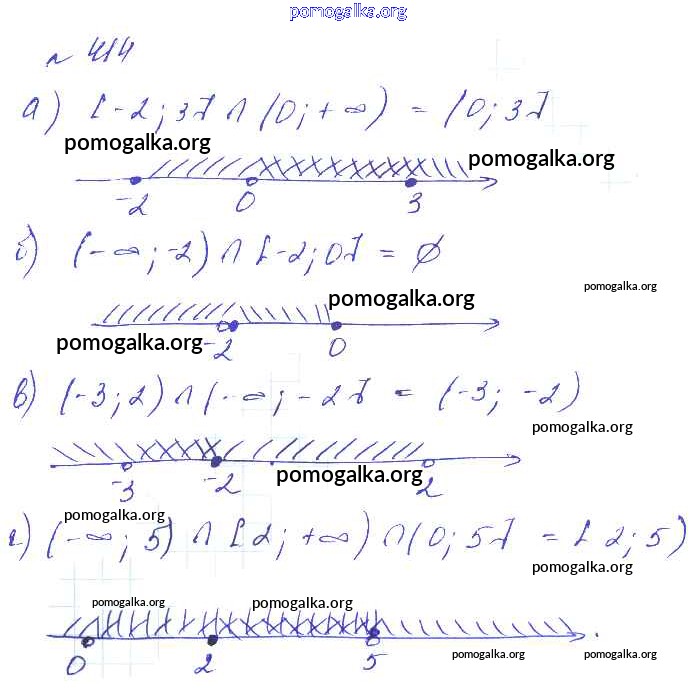 pomogalka.org
№ 414
а) [-2; 3] ∩ (0; +∞) = (0; 3]
pomogalka.org
pomogalka.org
-2 0 3
б) (-∞; -2) ∩ [-2; 0] = ∅
pomogalka.org
pomogalka.org
pomogalka.org
-2 0
в) (-3; 2) ∩ (-∞; -2] = (-3; -2)
pomogalka.org
pomogalka.org
-3 -2 2
pomogalka.org
г) (-∞; 5) ∩ [2; +∞) ∩ (0; 5] = [2; 5)
pomogalka.org
pomogalka.org pomogalka.org
0 2 5
pomogalka.org pomogalka.org